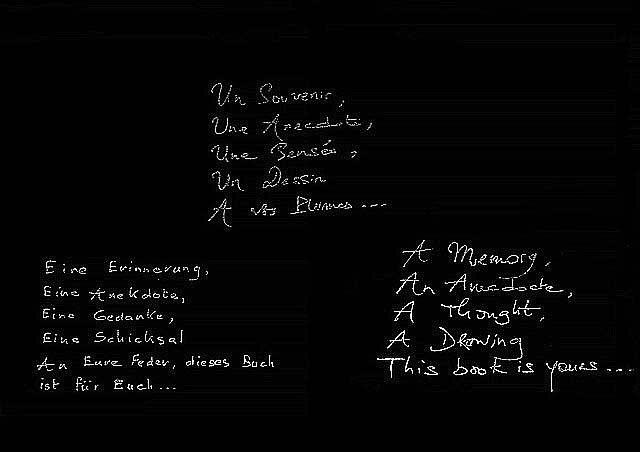 Un Souvenir,
Une Anecdote,
Une Pensée,
Un Dessin
A vos Plumes...
Eine Erinnerung,
Eine Anekdote,
Eine Gedanke,
Eine Schicksal
An Eure Feder, dieses Buch
ist für Euch...
A Memory,
An Anecdote,
A Thought,
A Drowing
This book is yours...